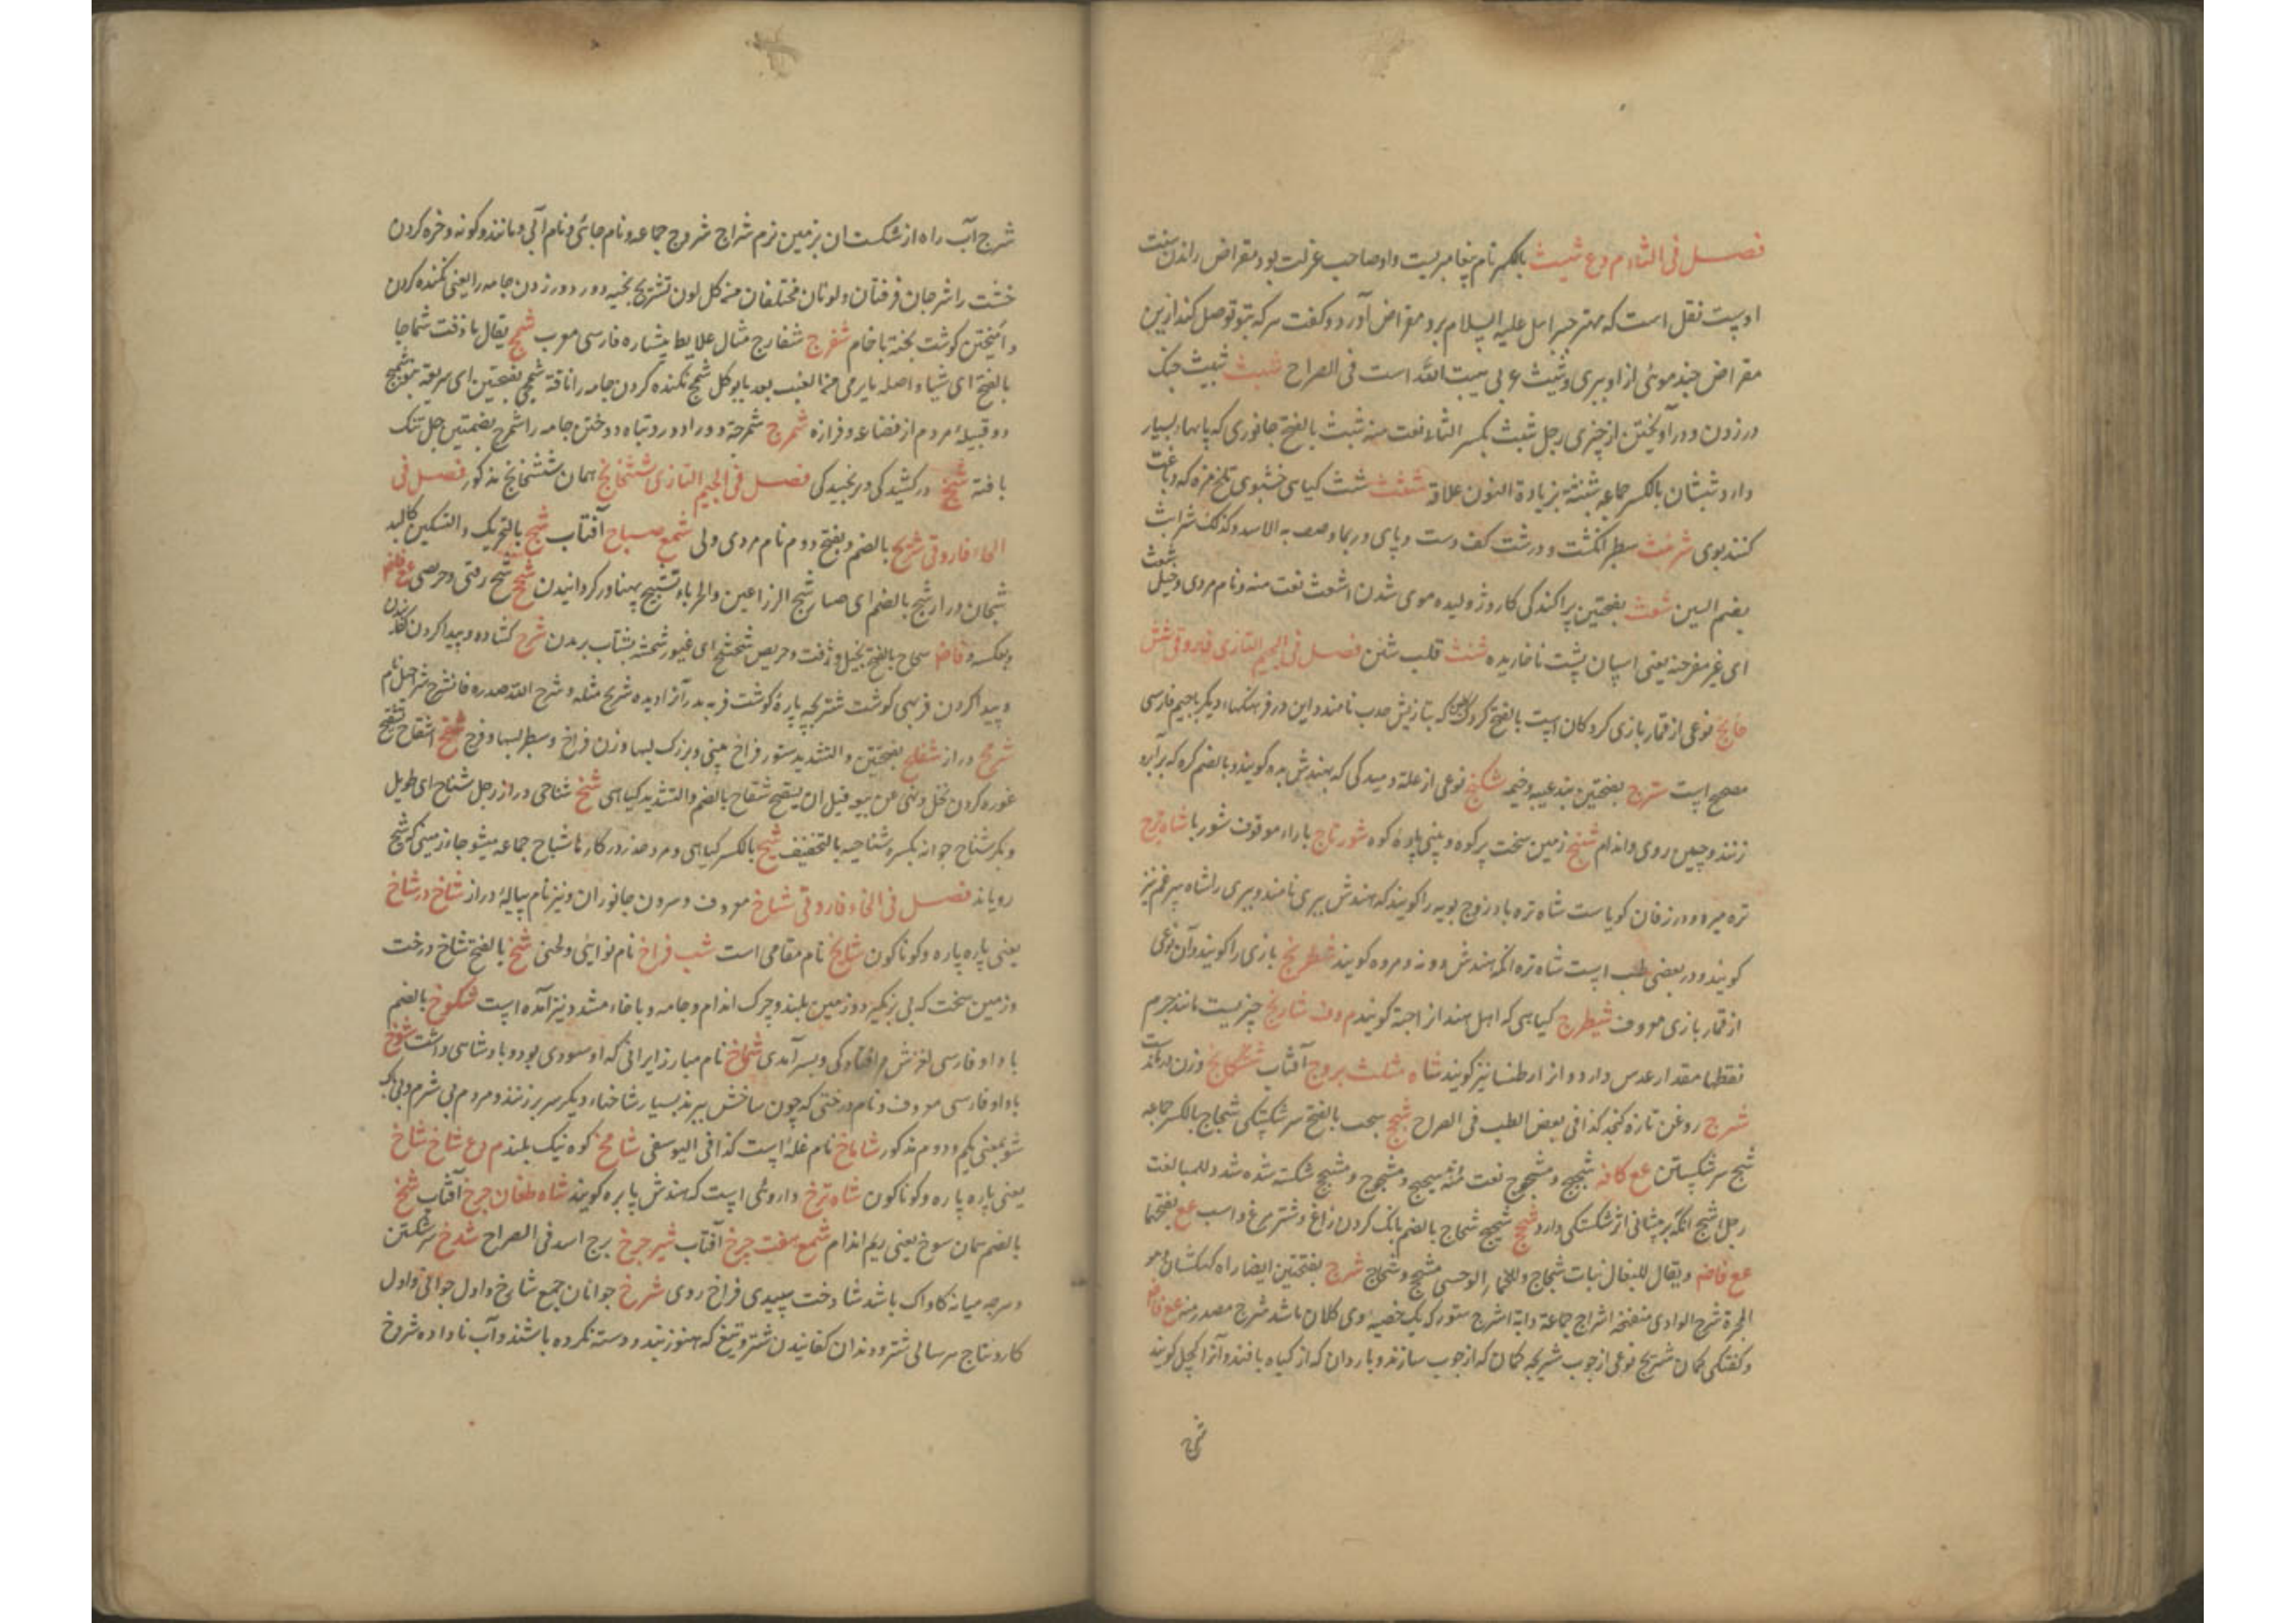 فصل فی الثاء م وع شیث بالکسر نام پیغامبریست واو صاحب عزلت بود مقراض راندن سنت
اوست نقل است که مهتر جبرائیل علیه السلام برو مقراض آورد و گفت هر که بتو توصل کند ازین
مقراض چند موئی از او ببری و شیث ع بی هبت الله است فی الصراح شبث شبث چنگ
در زدن و در آویختن از چیزی رجل شبث بکسر الثاء نعت منه شبث بالفتح جانوری که پایها بسیار
دارد شبثان بالکسر جماعه بزیادة النون علاقه شثث شث گیاهی خشبوی تلخ مزه که دباغت
کنند بوی شرنث سطبر انگشت و درشت کف دست و پای و ربما وصف به الاسد وکذلک شرابث
بضم الشین شعث بفتحتین پراکندگی کار و ژولیده موی شدن اشعث نعت منه و نام مردی و خیل شعث
ای غیر مفرجنه یعنی اسپان پشت ناخاریده شنث قلب شثن فصل فی الجیم التازی فاروقی شش
خانج نوعی از قمار بازی کردکان است بالفتح که بتازیش حدب نامند و این در فرهنگها دیگر باجیم فارسی
مصحح است شرج بفتحتین بند عیبه و خیمه شکنج نوعی از علة دمیدگی که بهندش بد گویند و بالضم کره که بر ابرو
زنند و چین روی و اندام شنج زمین سخت پر کوه و بینی پلوۀ کوه شورتاج باراء موقوف شور با شاه ترج
تره میرود و در زفان گویاست شاه تره بادرنج بویه را گویند که هندش بیری نامند و بیری را شاه سپرغم نیز
گویند و در بعضی طب است شاه تره آنکه هندش دونه و مروه گویند شطرنج بازی را گویند و آن نوعی
از قمار بازی معروف شیطرج گیاهی که اهل هند از اجته گویند م وف شاریج چیزیست مانند جرم
نقطها مقدار عدس دارد و از ارطنسا نیز گویند شاه مثلث بروج آفتاب
شیرج روغن تازه کنجد کذا فی بعض الطب فی الصراح شجج سجب بالفتح سر شکستگی شجاج بالکسر جماعه
شج سر شکستن عع کافه شجیج و مشجوج نعت منه و مشجج شکسته شده شدد للمبالغت
رجل اشج انکه بر پیشانی اثر شکستگی دارد شحج شحیج شحاج بالضم بانگ کردن زاغ و شتر مرغ و اسب عع بفتحها
عع فاضم و یقال للبغال نبات شحاج و للحمار الوحشی مشحج و شحاج شرج بفتحتین ایضا راه کهکشان و هو
المجرة شرج الوادی منفتحه اشراج جماعة دابة اشرج ستور که یک خصیه وی کلان باشد شرج مصدر منه عع فاضم
و کفتکی کمان شریج نوعی از چوب شریجه کمان که از چوب سازند و باردان که از گیاه بافند و آنرا کچل گویند
شرج
شرج آب راه از سنگستان بر زمین نرم شراج شروج جماعه و نام جائی و نام آبی و مانند و گونه و خره کردن
خشت را شرجان فرقتان و لونان مختلفان من کل لون تشریج بخیه دور دور زدن جامه را یعنی نکنده کردن
و آمیختن گوشت پخته با خام شفرج شفارج مثال علابط پیشاره فارسی معرب شمج یقال ما ذقت شماجا
بالفتح ای شیا و اصله ما یرمی من العنب بعد ما یوکل شمج نکنده کردن جامه را ناقة شمجی بفتحتین ای سریعة بنو شمج
دو قبیلۀ مردم از قضاعه و فزاره شمرج شمرجة دوراد ور و تباه دوختن جامه را شمرج بضمتین جل تنک
بافته شنج درکشیدگی و ترنجیدگی فصل فی الجیم التازی ششخانج همان ششخانج مذکور فصل فی
الحاء فاروقی شریح بالضم و بفتح دوم نام مردی ولی شمع صباح آفتاب شبح بالتحریک والتسکین کالبد
شبحان دراز شبح بالضم ای صار شبح الذراعین والحرباء و تشبیح پهناور گردانیدن شحح شح زفتی و حریصی عع فافضم
و بعکسه و فافضم شحاح بالفتح بخیل و زفت و حریص شحشح ای غیور شحشه بشتاب بریدن شرح گشاده و پیدا کردن
و پیدا کردن فربهی گوشت شریحه پارۀ گوشت فربه دراز بریده شریح مثله و شرح الله صدره فانشرح شراحیل نام
شرمح دراز شفلح بفتحتین والتشدید ستور فراخ بینی و بزرگ لبها و زن فراخ و سطبر لبها و فرج شقح اشقاح تشقیح
غوره کردن نخل و نهی عن بیعه قبل ان یشقح شقاح بالضم والتشدید گیاهی شنح شناحی دراز رجل شناح ای طویل
و بکر شناح جوانه بکسر و شناحیه بالتخفیف شیح بالکسر گیاهی و مرد حذر در کارها شیاح جماعه مشیوحاء زمینی که شیح
رویاند فصل فی الخاء فاروقی شاخ معروف و سرون جانوران و نیز نام پیالۀ دراز شاخ در شاخ
یعنی پاره پاره و گوناگون شایخ نام مقامی است شب فراخ نام نوائی و لحنی شخ بالفتح شاخ درخت
و زمین سخت که پی بر نگیرد و زمین بلند و چرک اندام و جامه و باخاء مشدد نیز آمده است شکوخ بالضم
باواو فارسی لغزش و افتادگی و بسر آمدی شماخ نام مبارز ایرانی که او سعودی بود و پادشاهی داشت شوخ
باواو فارسی معروف و نام درختی که چون شاخش ببرند بسیار شاخهاء دیگر سر برزنند و مردم بی شرم و بی باک
شو بمعنی یکم و دوم مذکور شاماخ نام غلۀ است کذا فی الیوسفی شامخ کوه نیک بلند م وع شاخ شاخ
یعنی پاره پاره و گوناگون شاه ترخ داروئی است که هندش پاپره گویند شاه طغان چرخ آفتاب شخ
بالضم همان سوخ یعنی ریم اندام شمع هفت چرخ آفتاب شیر چرخ برج اسد فی الصراح شدخ سر شکستن
و هرچه میانه کاواک باشد شادخت سپیدی فراخ روی شرخ جوانان جمع شارخ و اول جوانی و اول
کار و نتاج هر سالی شتر و دندان کفانیدن شتر و تیغ که هنوز بند و دسته نکرده باشند و آب ناداده شروخ